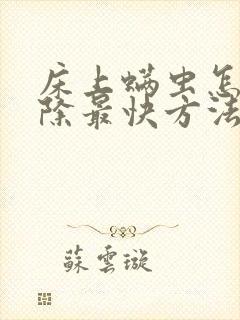 床上螨虫怎
除最快方法
蘇雲璇